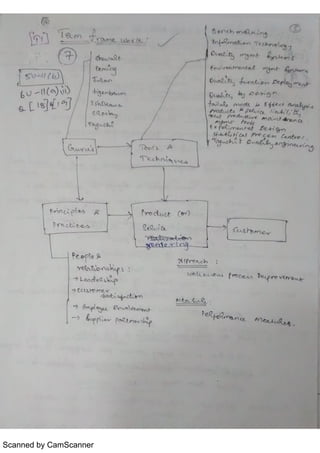 TQM Frame Work:
7
Benchmarking
Information Technology,
Quality mgmt Systems
Environmental mgmt Systems
Quality function Deployment
Quality by Design.
failure mode & Effect analysis
products & service liability
Total productive maintenance
mgmt tools
Experimental Design
Statistical Process Control.
Taguchi's Quality engineering
Deming
Juran
Feigenbaum
Ishikawa
Crosby
Taguchi
Gurus
Tools &
Techniques
Principles &
Practices
Product (or)
Service
realization
Customer
People &
relationships :
→ Leadership
→ Customer
satisfaction
→ Employee Involvement
→ Supplier partnership
Approach :
Continuous process Improvement
Measures:
Performance Measures.
Scanned by CamScanner